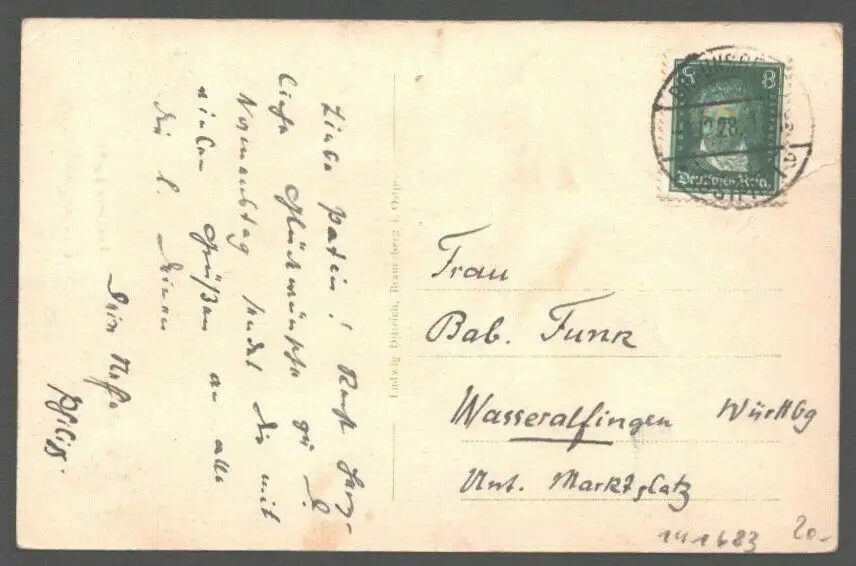 Liebe Patin! Recht herz-
liche Glückwünsche zu D.
Namenstag sendet Dir mit
vielen Grüßen an alle
Die l. Deinen
Dein Neffe
Philipp.
8 8
Deutsches Reich
Frau
Bab. Funk
Wasseralfingen Württbg
Unt. Marktplatz
141683 20.-